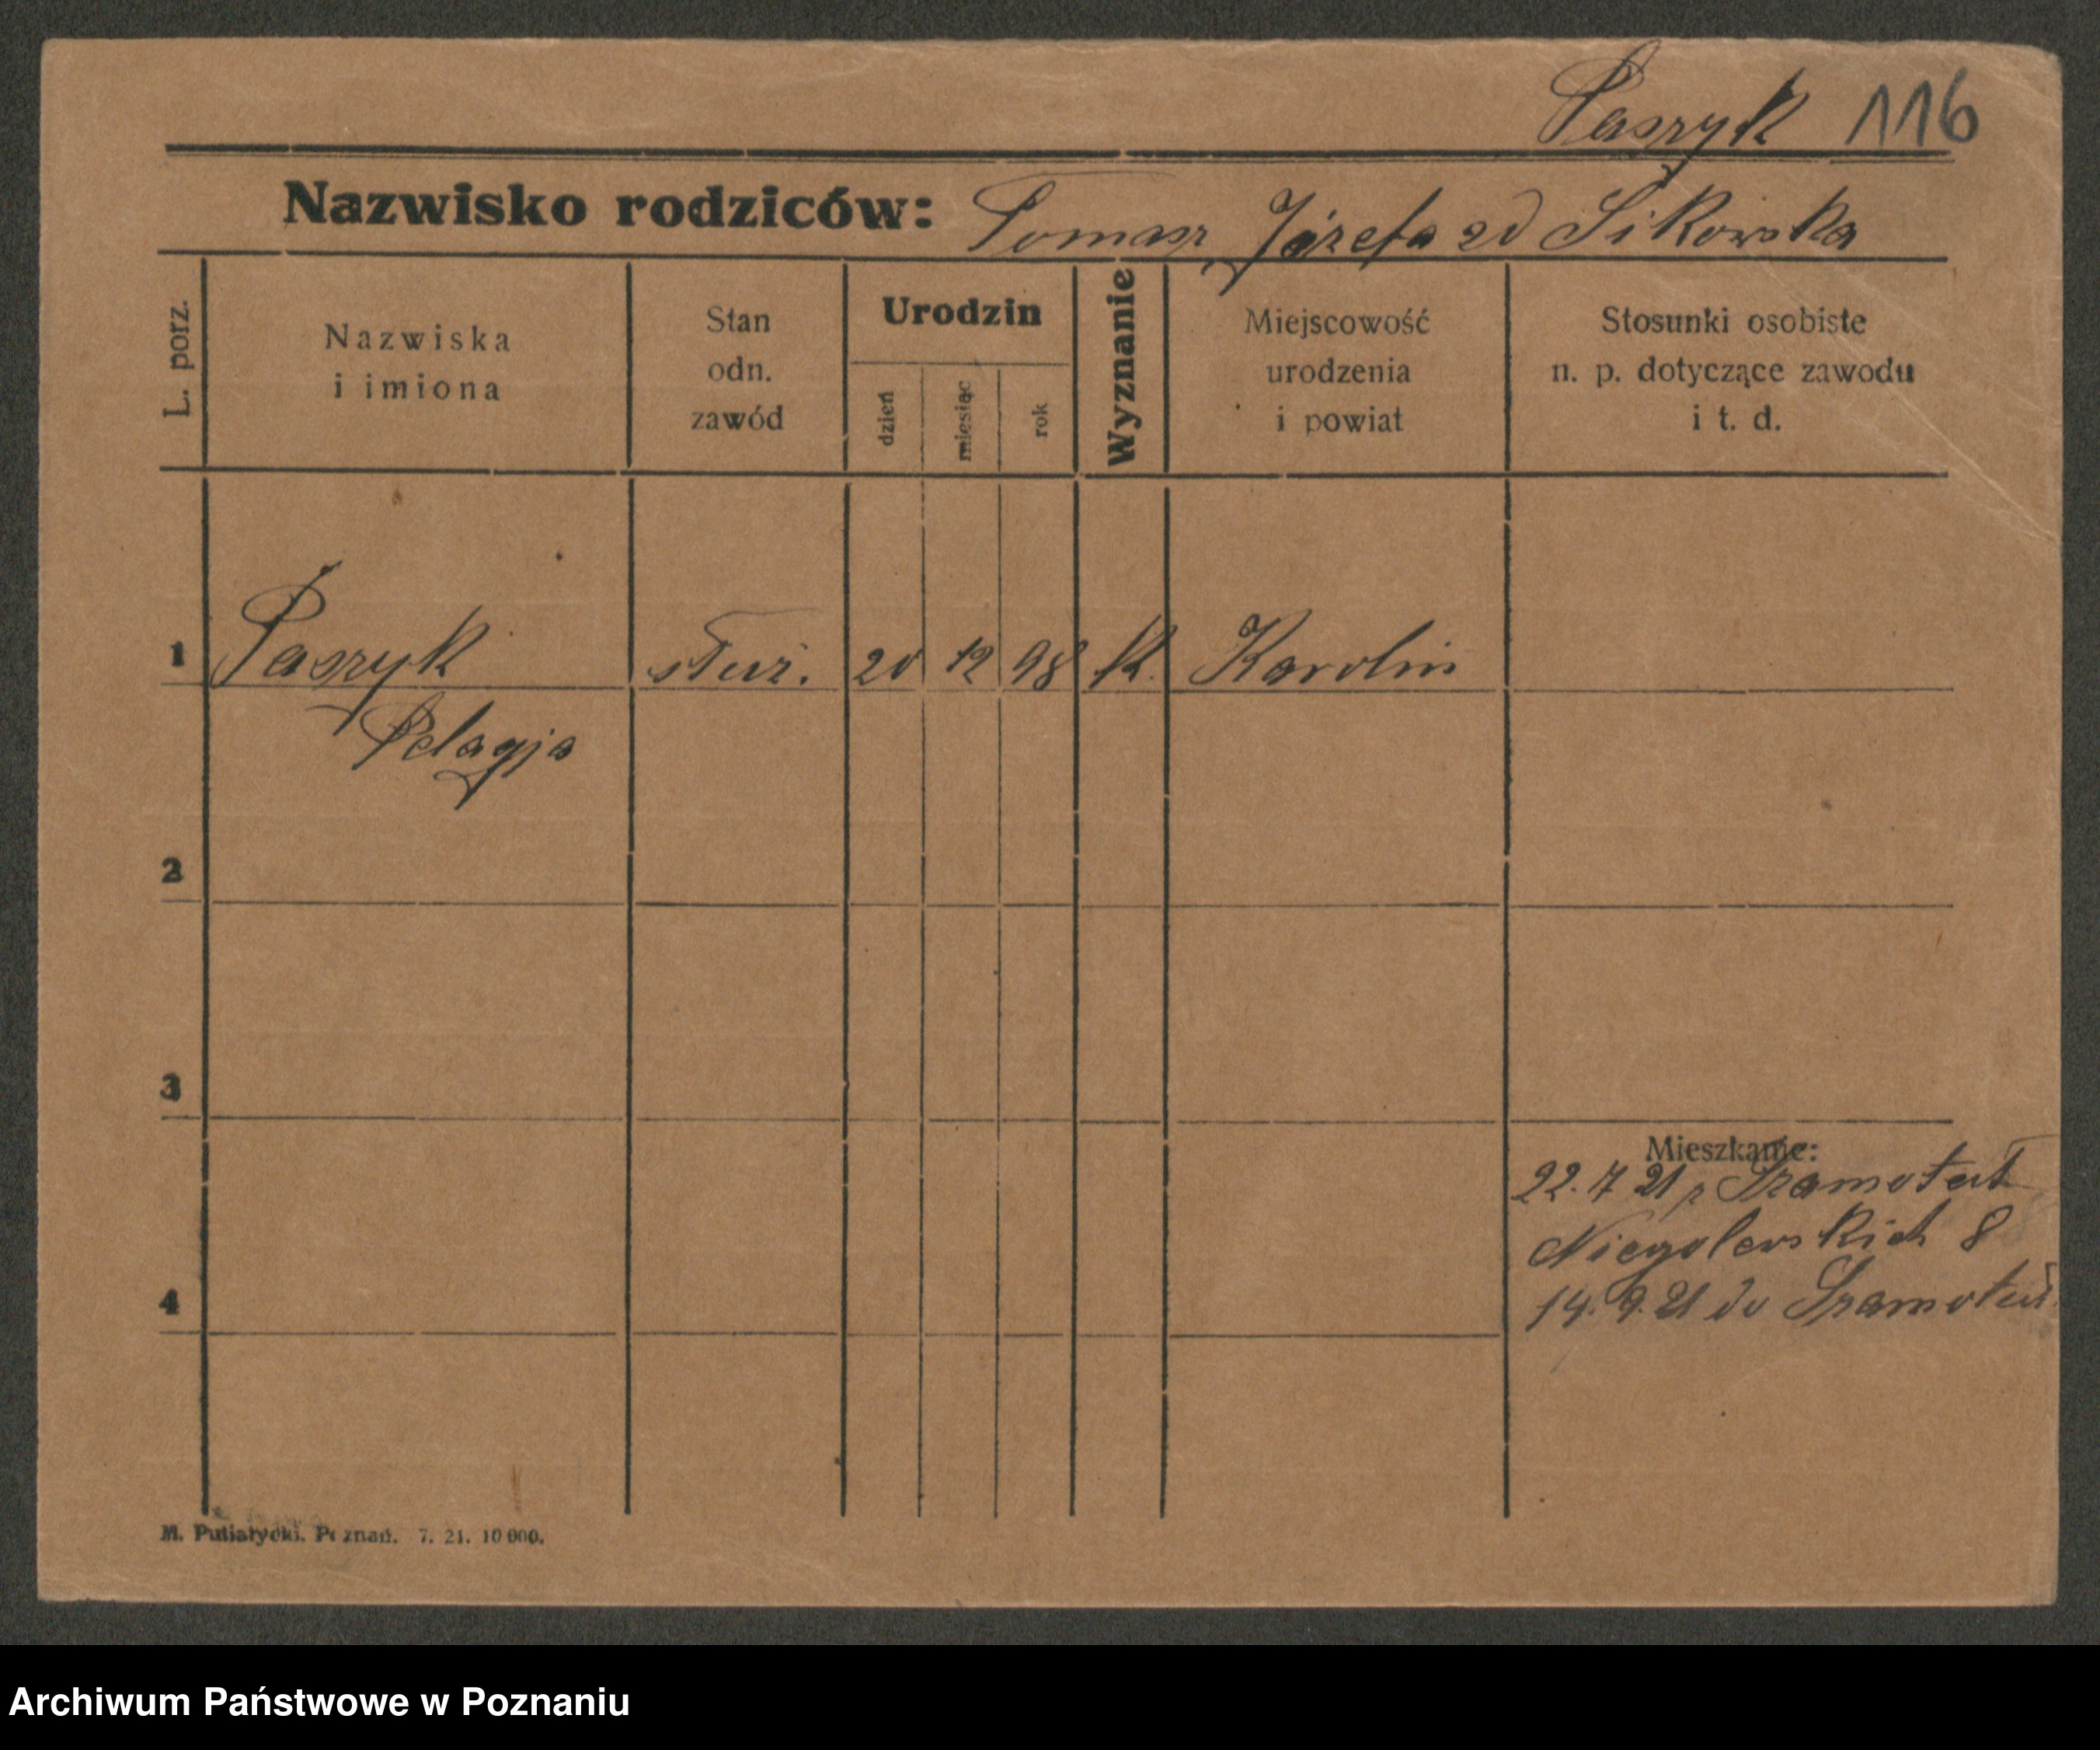 Paszyk 116
Nazwisko rodziców: Tomasz Józefa zd Sikowska
L. porz.
Nazwiska
i imiona
Stan
odn.
zawód
Urodzin
dzień
miesiąc
rok
Wyznanie
Miejscowość
urodzenia
i powiat
Stosunki osobiste
n. p. dotyczące zawodu
i t. d.
1 Paszyk służ. 20 12 98 K. Karolin
Pelagja
2
3
Mieszkanie:
22. 7 21 z Szamotuł
Niegolewskich 8
4
14. 9. 21 do Szamotuł
M. Putiatycki. Poznań. 7. 21. 10 000.
Archiwum Państwowe w Poznaniu